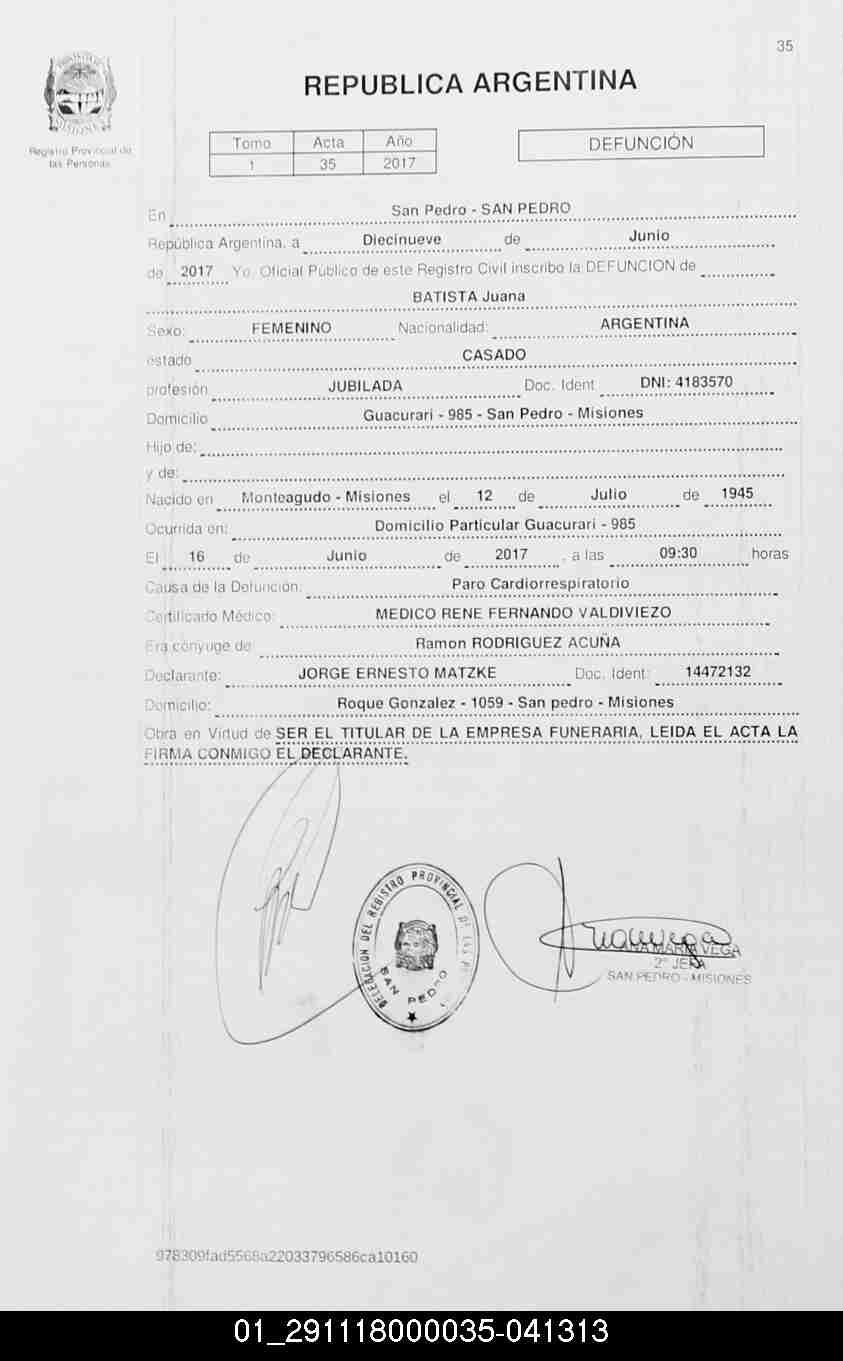 35
REPUBLICA ARGENTINA
Registro Provincial de
las Personas
Tomo Acta Año
1 35 2017
DEFUNCIÓN
En San Pedro - SAN PEDRO
República Argentina, a Diecinueve de Junio
de 2017 Yo, Oficial Público de este Registro Civil inscribo la DEFUNCION de
BATISTA Juana
Sexo: FEMENINO Nacionalidad: ARGENTINA
estado CASADO
profesión JUBILADA Doc. Ident. DNI: 4183570
Domicilio Guacurari - 985 - San Pedro - Misiones
Hijo de:
y de:
Nacido en Monteagudo - Misiones el 12 de Julio de 1945
Ocurrida en: Domicilio Particular Guacurari - 985
El 16 de Junio de 2017, a las 09:30 horas
Causa de la Defunción: Paro Cardiorrespiratorio
Certificado Médico: MEDICO RENE FERNANDO VALDIVIEZO
Era cónyuge de Ramon RODRIGUEZ ACUÑA
Declarante: JORGE ERNESTO MATZKE Doc. Ident: 14472132
Domicilio: Roque Gonzalez - 1059 - San pedro - Misiones
Obra en Virtud de SER EL TITULAR DE LA EMPRESA FUNERARIA, LEIDA EL ACTA LA
FIRMA CONMIGO EL DECLARANTE.
DELEGACION DEL REGISTRO PROVINCIAL DE LAS
SAN PEDRO
MARIA VEGA
2° JEFA
SAN PEDRO - MISIONES
978309fad5568a22033796586ca10160
01_291118000035-041313